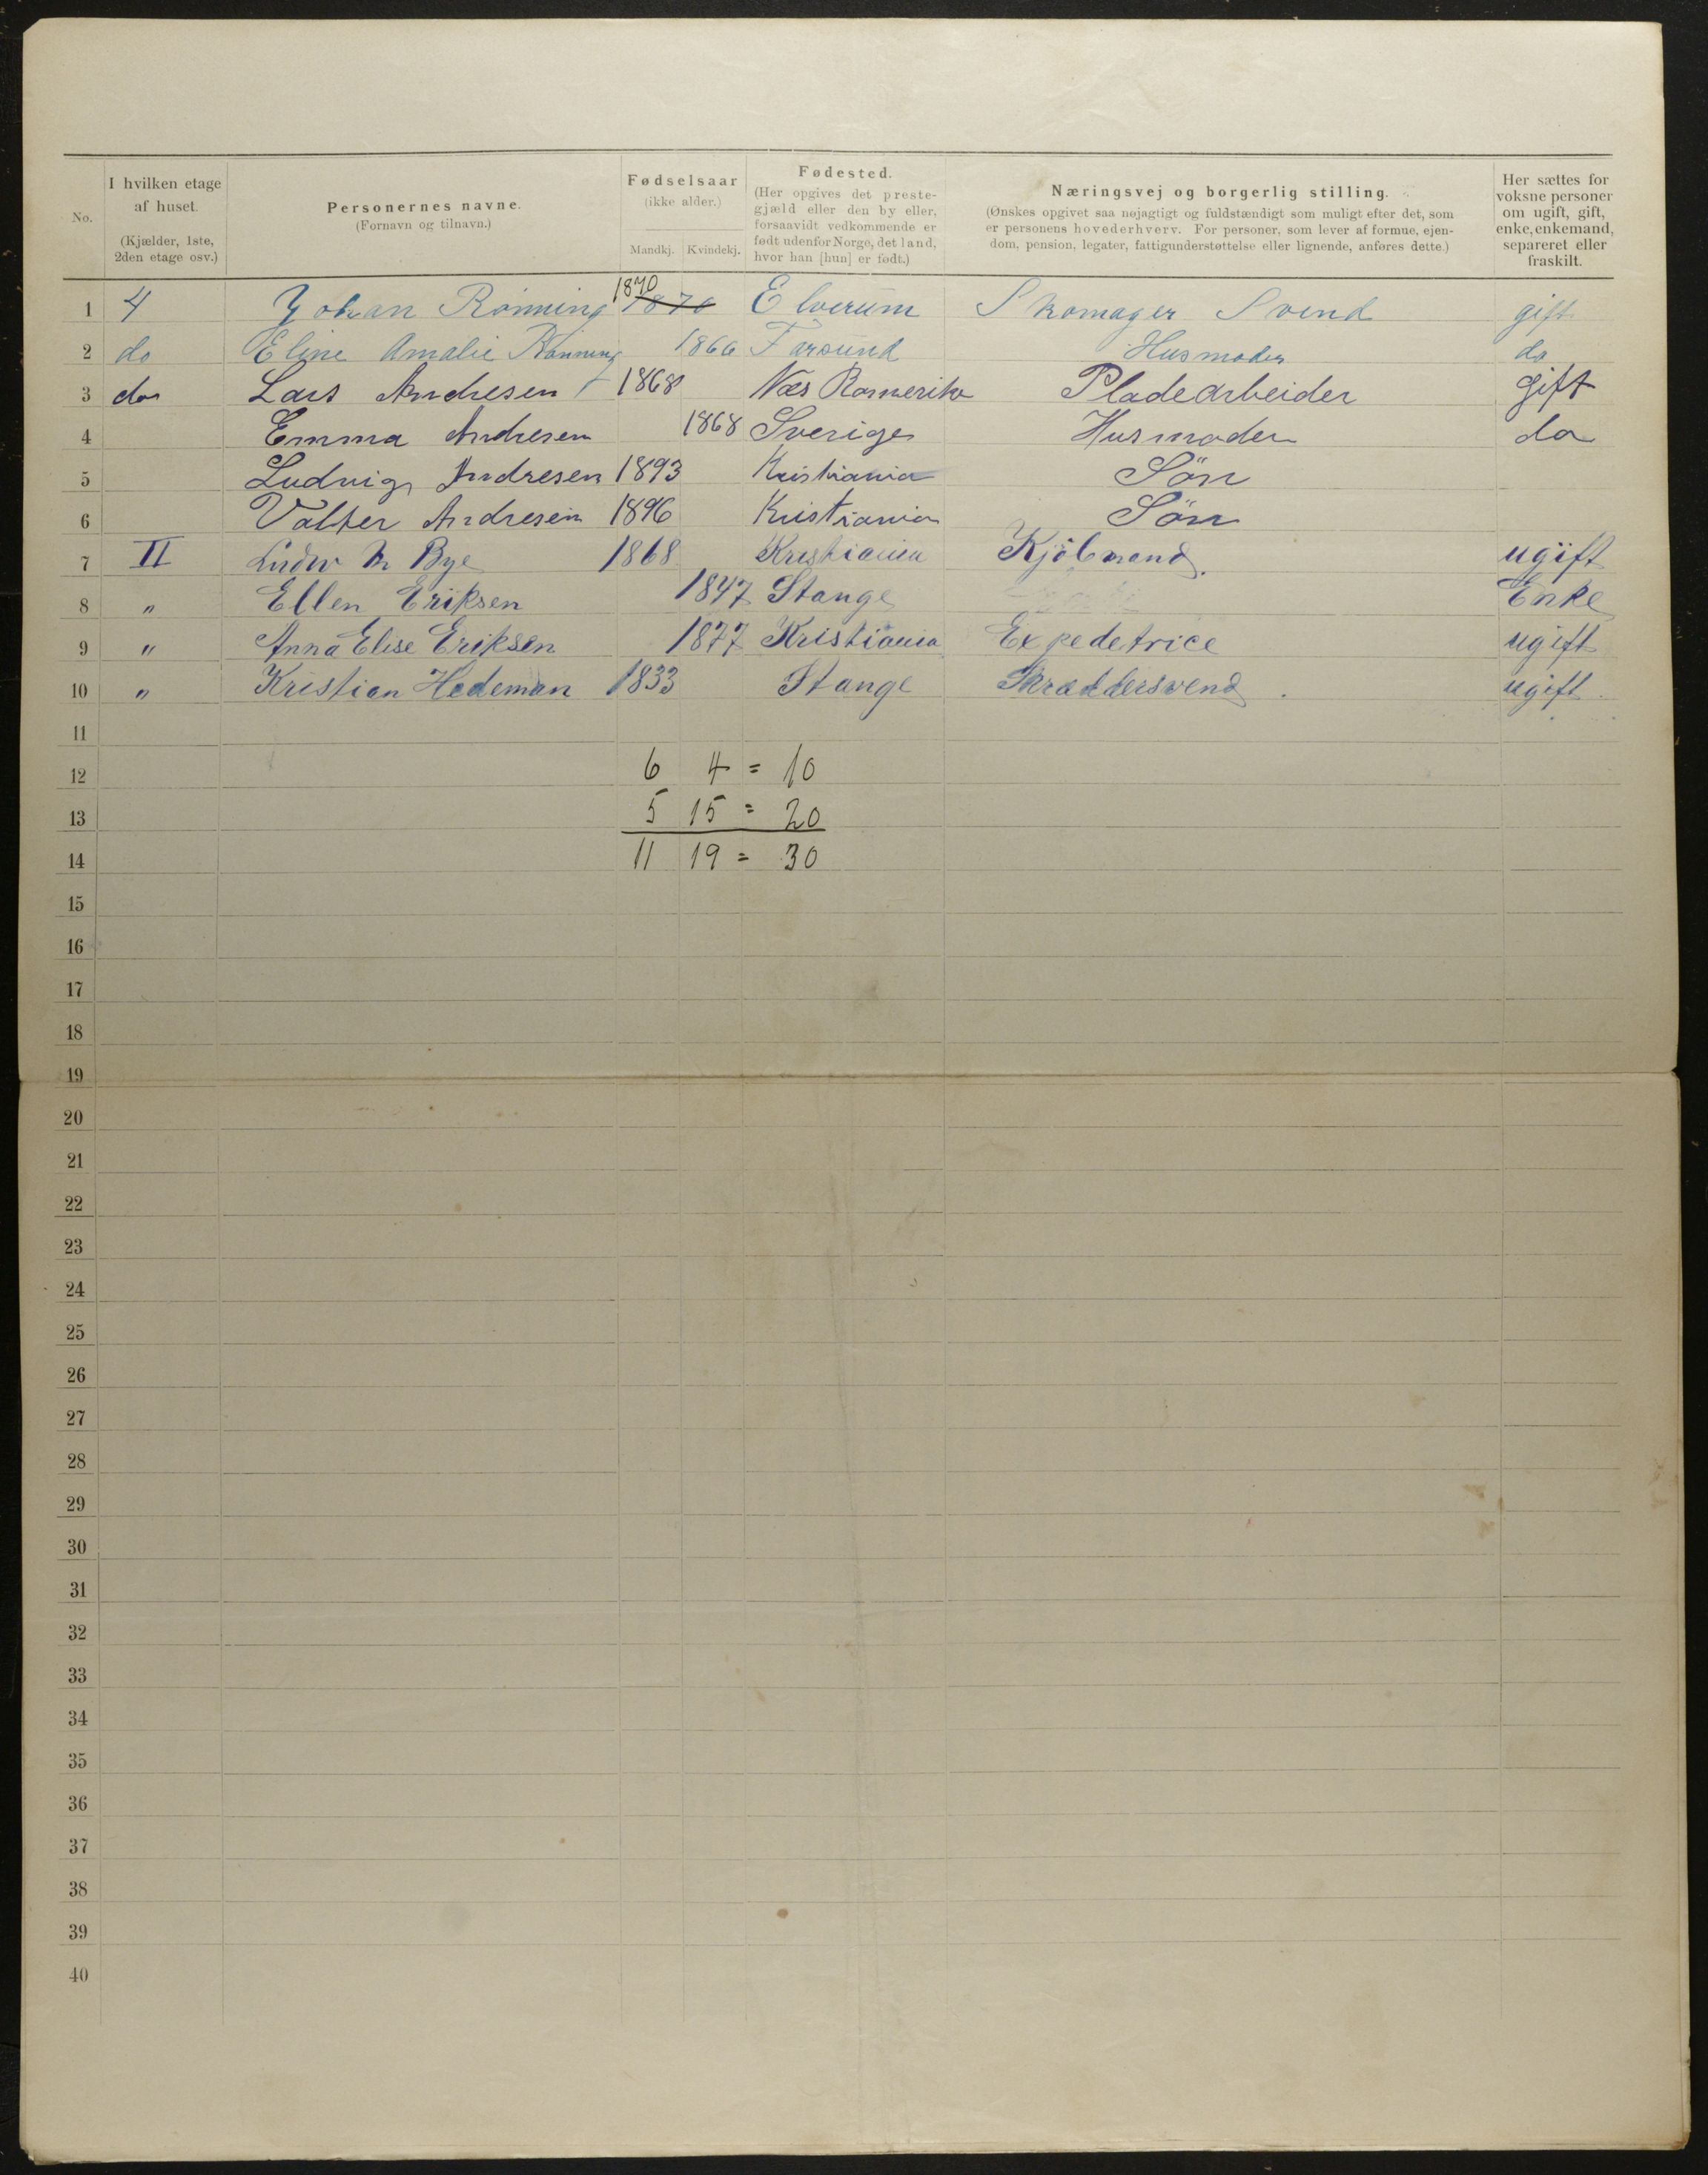 No. I hvilken etage af huset. (Kjælder, 1ste, 2den etage osv.) Personernes navne. (Fornavn og tilnavn.) Fødselsaar (ikke alder.) Mandkj. Kvindekj. Fødested. (Her opgives det prestegjæld eller den by eller, forsaavidt vedkommende er født udenfor Norge, det land, hvor han [hun] er født.) Næringsvej og borgerlig stilling. (Ønskes opgivet saa nøjagtigt og fuldstændigt som muligt efter det, som er personens hovederhverv. For personer, som lever af formue, ejendom, pension, legater, fattigunderstøttelse eller lignende, anføres dette.) Her sættes for voksne personer om ugift, gift, enke, enkemand, separeret eller fraskilt.
1 4 Johan Rönning 1870 1870 Elverum Skomager Svend gift
2 do Eline Amalie Rönning 1866 Farsund Husmoder do
3 do Lars Andresen 1868 Næs Romerike Pladearbeider gift
4 Emma Andresen 1868 Sverige Husmoder do
5 Ludvig Andresen 1893 Kristiania Sön
6 Valter Andresen 1896 Kristiania Sön
7 II Ludv M Bye 1868 Kristiania Kjöbmand. ugift
8 " Ellen Eriksen 1847 Stange Enke
9 " Anna Elise Eriksen 1877 Kristiania Expedetrice ugift
10 " Kristian Hedeman 1833 Stange Skræddersvend. ugift.
11
12 6 4 = 10
13 5 15 = 20
14 11 19 = 30
15
16
17
18
19
20
21
22
23
24
25
26
27
28
29
30
31
32
33
34
35
36
37
38
39
40